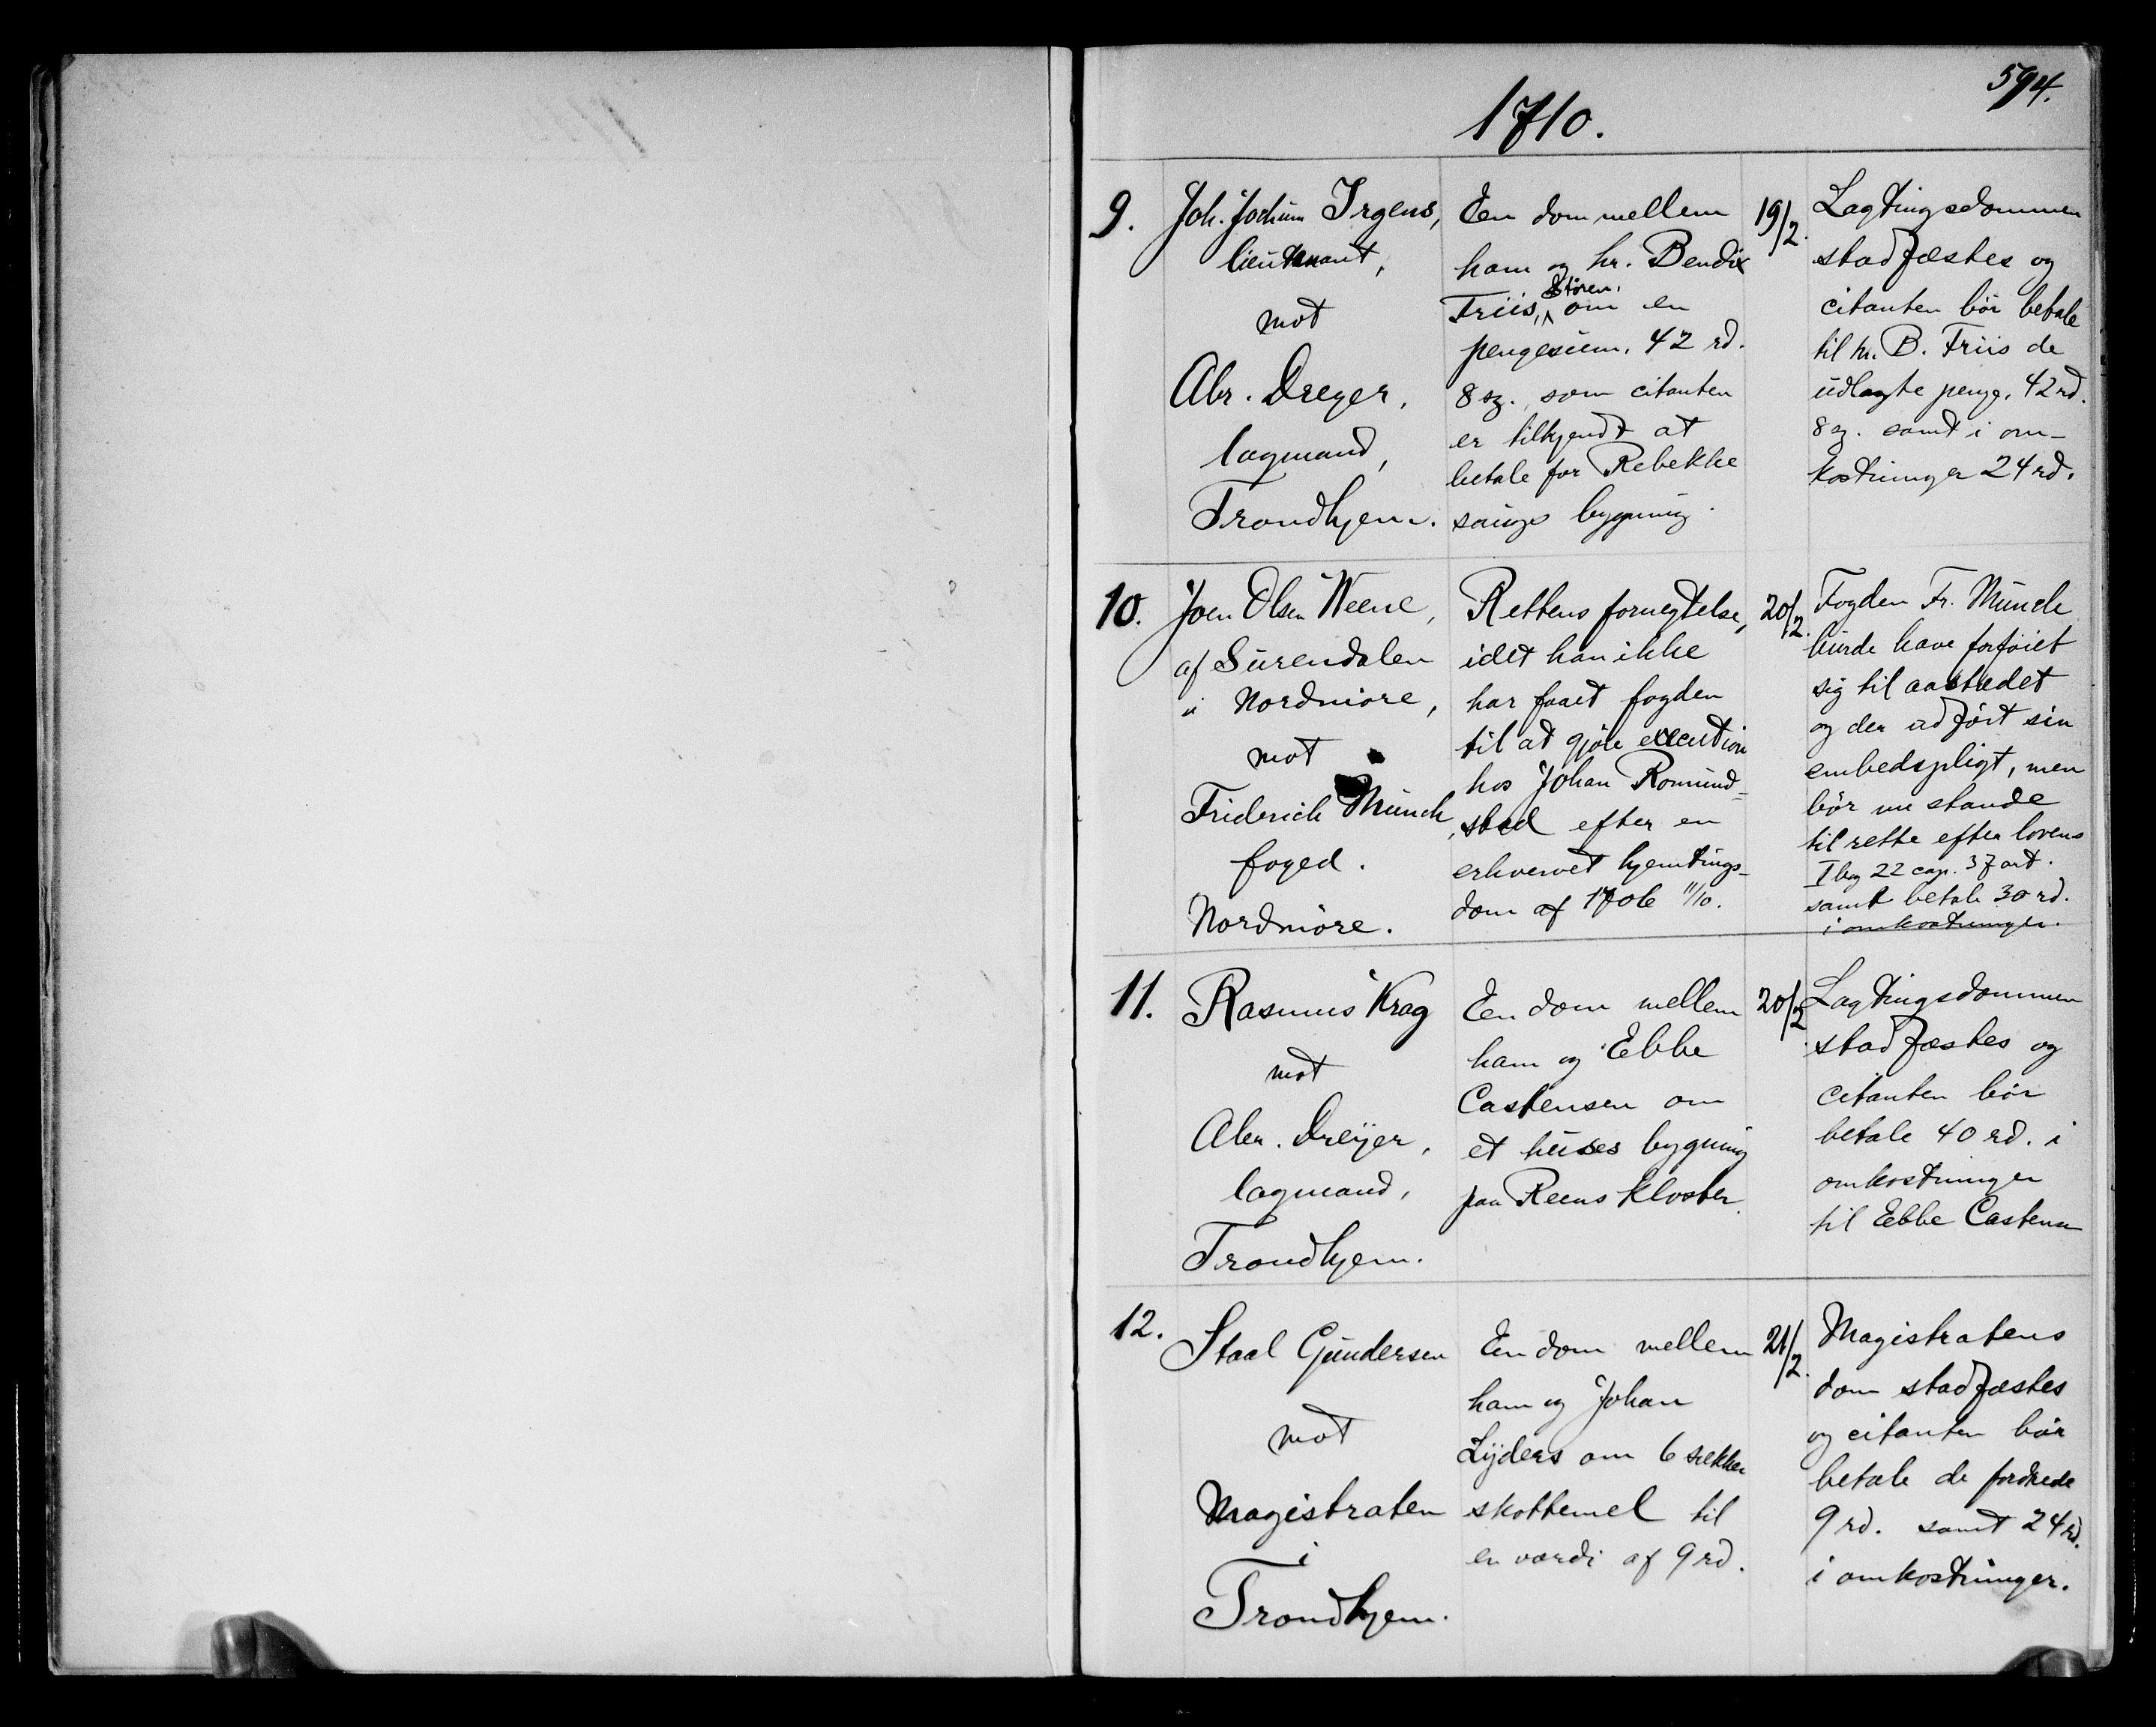 594.
1710.
9.
Joh. Jochum Irgens,
lieutenant,
mot
Abr. Dreyer,
lagmand,
Trondhjem.
Een dom mellem
ham og hr. Bendix
Støren.
Friis, om en
pengesum, 42 rd.
8 sz., som citanten
er tilkjendt at
betale for Rebekke
bygning.
19/2.
Lagtingsdommen
stadfæstes og
citanten bør betale
til hr. B. Friis de
udlagte penge, 42 rd.
8 sz. samt i om-
kostninger 24 rd.
10.
Joen Olsen Weene,
af Surendalen
i Nordmøre,
mot
Friderich Münch,
foged.
Nordmøre.
Rettens fornegtelse,
idet han ikke
har faaet fogden
til at gjøre execution
hos Johan Romund-
stad efter en
erhvervet hjemtings-
dom af 1706 11/10.
20/2.
Fogden Fr. Münch
burde have forføiet
sig til aastedet
og der udført sin
embedspligt, men
bør nu stande
til rette efter lovens
I bog 22 cap. 37 art.
samt betale 30 rd.
i omkostninger.
11.
Rasmus Krag
mot
Abr. Dreÿer,
lagmand,
Trondhjem.
Een dom mellem
ham og Ebbe
Castensen om
et huses bygning
paa Reens kloster.
20/2
Lagtingsdommen
stadfæstes og
citanten bør
betale 40 rd. i
omkostninger
til Ebbe Castensen
12.
Staal Gundersen
mot
Magistraten
i
Trondhjem.
Een dom mellem
ham og Johan
Lÿders om 6 sekker
skottemel til
en værdi af 9 rd.
21/2.
Magistratens
dom stadfæstes
og citanten bør
betale de fordrede
9 rd. samt 24 rd.
i omkostninger.